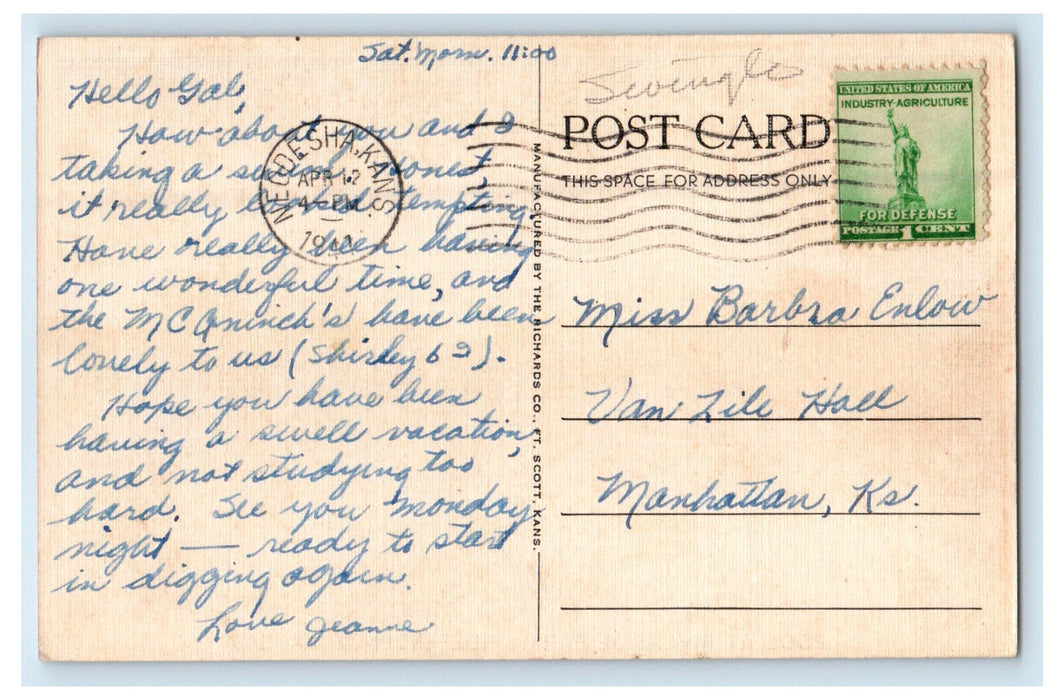 Sat. Morn. 11:00
Hello Gal,
How about you and I
taking a swim, honest,
it really looks tempting.
Have really been having
one wonderful time, and
the McAninch's have been
lovely to us (Shirley & I).
Hope you have been
having a swell vacation,
and not studying too
hard. See you Monday
night — ready to start
in digging again.
Love Jeanne
NEODESHA, KANS.
APR 12
4 - PM
MANUFACTURED BY THE RICHARDS CO., FT. SCOTT, KANS.
Swingle
POST CARD
THIS SPACE FOR ADDRESS ONLY
UNITED STATES OF AMERICA
INDUSTRY·AGRICULTURE
FOR DEFENSE
POSTAGE 1 CENT
Miss Barbra Enlow
Van Zile Hall
Manhattan, Ks.